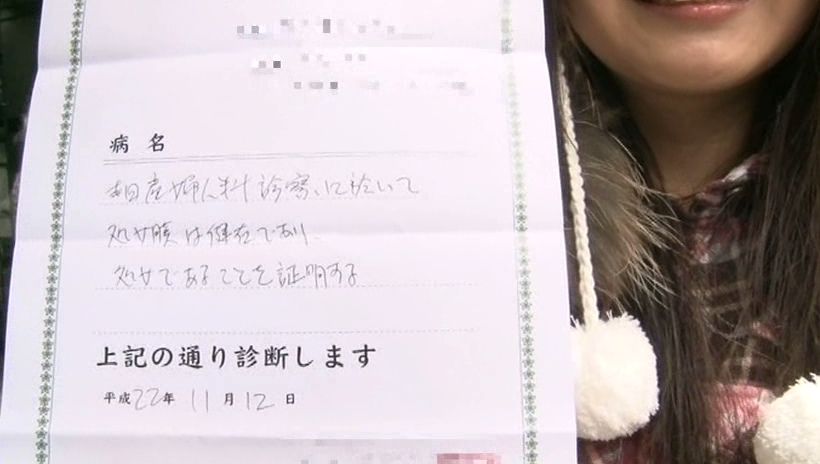 病名
産婦人科診察に於いて
処女膜は健在であり、
処女であることを証明する
上記の通り診断します
平成22年11月12日